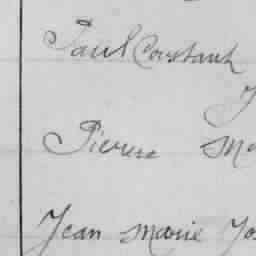 Paul Constant
Pierre
Jean Marie